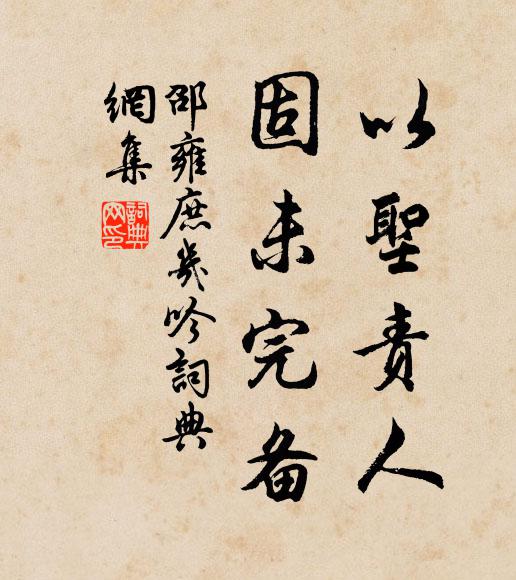 以聖責人
固未完备
邵雍庶幾吟詞典
網集
詞典
网印